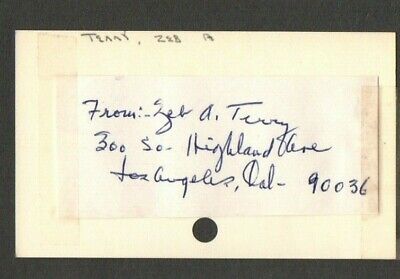 TERRY, ZEB A
From:- Zeb A. Terry
300 So- Highland Ave
Los Angeles, Cal- 90036